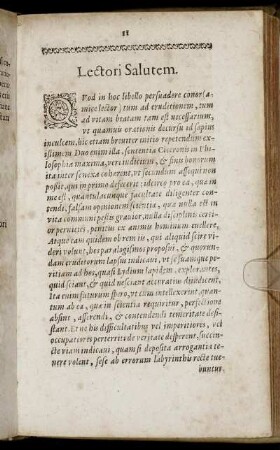 11
Lectori Salutem.
QVod in hoc libello persuadere conor (a-
mice lector) tum ad eruditionem, tum
ad vitam beatam tam est necessarium,
vt quamuis orationis doctorū id sæpius
inculcent, hic etiam breuiter mihi repetendum ex-
istimem. Duo enim illa, sententia Ciceronis in Phi-
losophia maxima, veri iudicium, & finis bonorum
ita inter se nexa cohærent, vt secundum assequi non
possit, qui in primo deserit; ideoq; pro ea, quæ in
me est, quantulacunque facultate diligenter con-
tendi, falsam opinionem scientiæ, qua nulla est in
vita communi pestis grauior, nulla disciplinis certi-
or pernicies, penitus ex animis hominum euellere.
Atque tam quidem ob rem iis, qui aliquid scire vi-
deri volunt, hos paralogismos proposui, & quorun-
dam eruditorum lapsus indicaui, vt se suamque pe-
ritiam ad hos, quasi Lydium lapidem, explorantes,
quid sciant, & quid nesciant accuratius diiudicent.
Ita enim futurum spero, vt cum intellexerint, quan-
tum ab ea, quæ in scientia requiritur, perfectione
absint, asserendi, & contendendi temeritate desi-
stant. Et ne his difficultatibus vel imperitiores, vel
occupatioris perterriti de veritate desperent, succin-
cte viam indicaui, quam si deposita arrogantia te-
nere volent, sese ab errorum labyrinthis recte tue-
buntur.